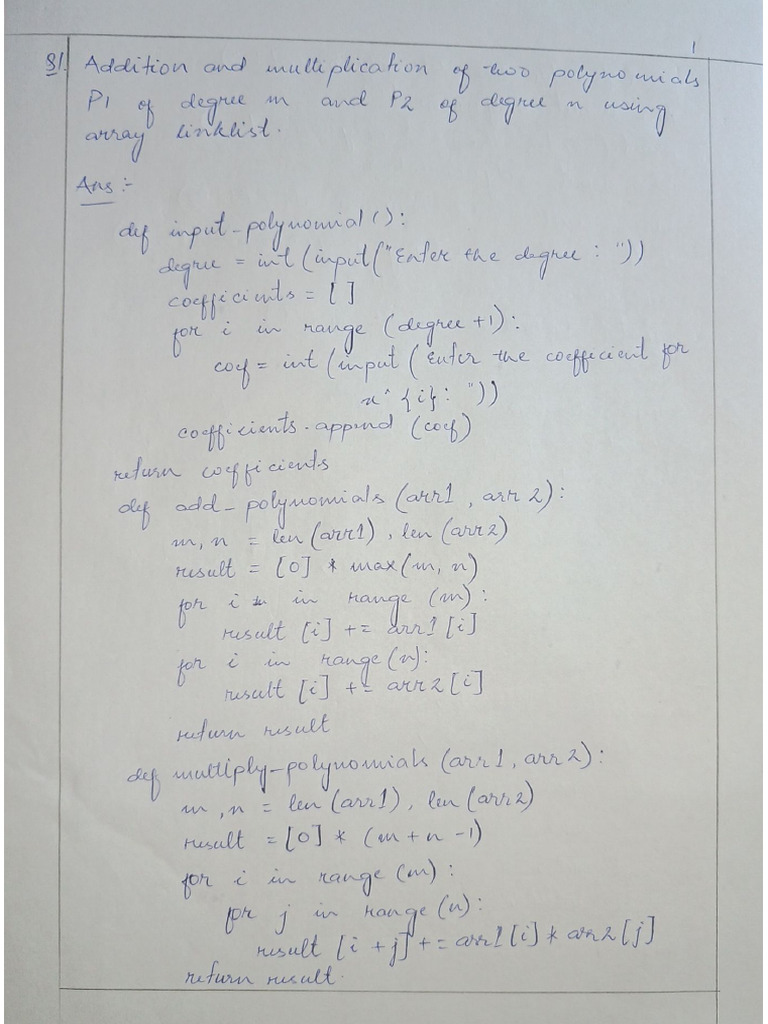 1
Q1. Addition and multiplication of two polynomials
P1 of degree m and P2 of degree n using
array linklist.
Ans :-
def input_polynomial():
degree = int(input("Enter the degree : "))
coefficients = [ ]
for i in range (degree+1):
coef = int (input ( Enter the coefficient for
x^ {i} : "))
coefficients.append (coef)
return coefficients
def add_polynomials (arr1 , arr2):
m, n = len(arr1) , len (arr2)
result = [0] * max(m, n)
for i in range (m) :
result [i] += arr1 [i]
for i in range(n):
result [i] += arr2 [i]
return result
def multiply_polynomials (arr1, arr2) :
m , n = len (arr1), len (arr2)
result = [0] * (m + n -1)
for i in range (m) :
for j in range (n) :
result [i + j] += arr1 [i] * arr2 [j]
return result.